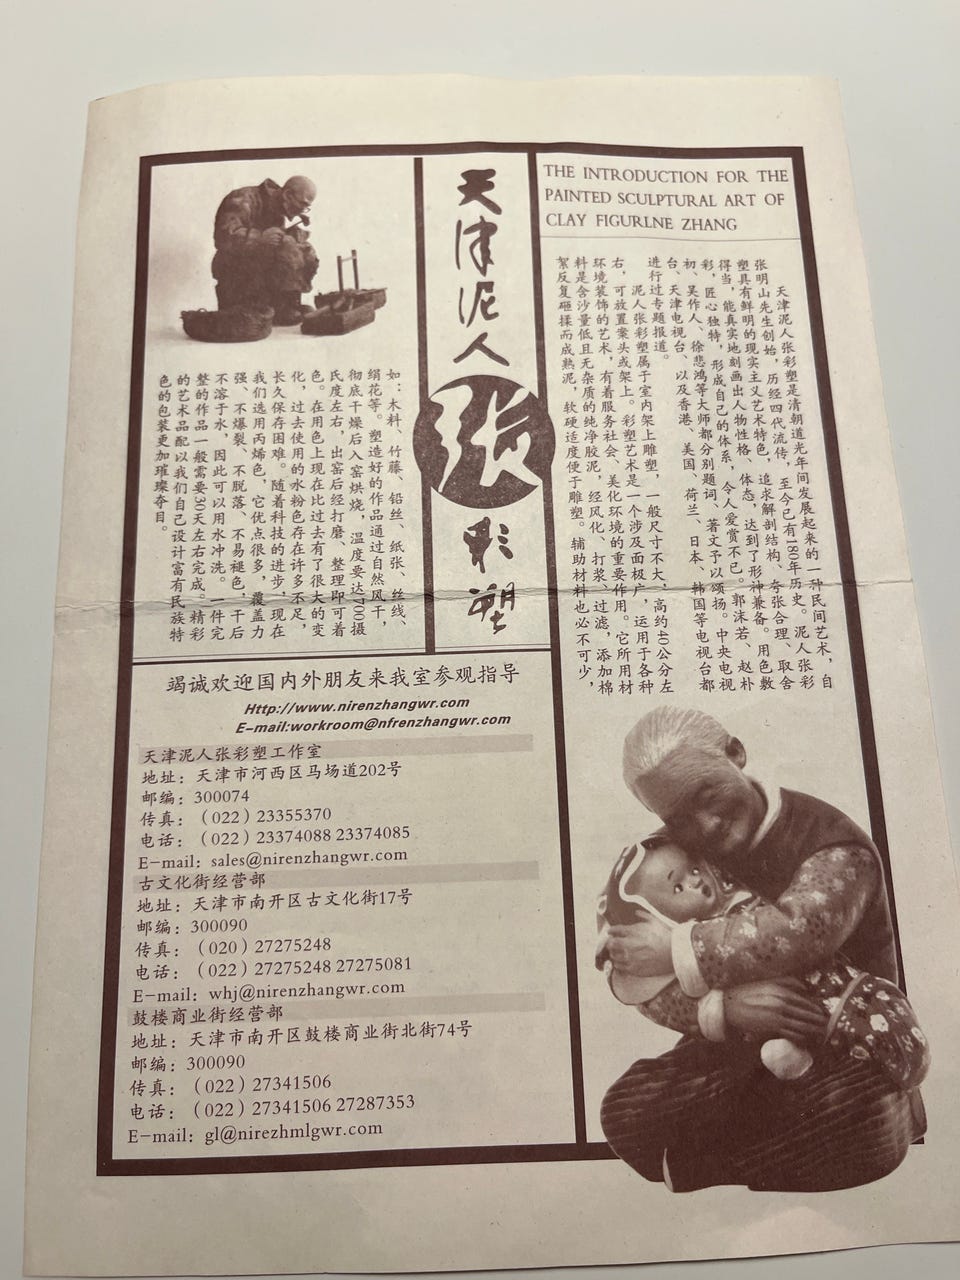 THE INTRODUCTION FOR THE
PAINTED SCULPTURAL ART OF
CLAY FIGURLNE ZHANG
天津泥人张彩塑
天津泥人张彩塑是清朝道光年间发展起来的一种民间艺术，自
张明山先生创始，历经四代流传，至今已有180年历史。泥人张彩
塑具有鲜明的现实主义艺术特色，追求解剖结构、夸张合理、取舍
得当，能真实地刻画出人物性格、体态，达到了形神兼备。用色敷
彩，匠心独特，形成自己的体系，令人爱赏不已。郭沫若、赵朴
初、吴作人、徐悲鸿等大师都分别题词、著文予以颂扬。中央电视
台、天津电视台、以及香港、美国、荷兰、日本、韩国等电视台都
进行过专题报道。
泥人张彩塑属于室内架上雕塑，一般尺寸不大，高约40公分左
右，可放置案头或架上。彩塑艺术是一个涉及面极广，运用于各种
环境装饰的艺术，有着服务社会、美化环境的重要作用。它所用材
料是含沙量低且无杂质的纯净胶泥，经风化、打浆、过滤，添加棉
絮反复砸揉而成熟泥，软硬适度便于雕塑。辅助材料也必不可少，
如：木料、竹藤、铅丝、纸张、丝线、
绢花等。塑造好的作品通过自然风干，
彻底干燥后入窑烘烧，温度要达700摄
氏度左右，出窑后经打磨、整理即可着
色。在用色上现在比过去有了很大的变
化，过去使用的水粉色存在许多不足，
长久保存困难。随着科技的进步，现在
我们选用丙烯色，它优点很多，覆盖力
强、不爆裂、不脱落、不易褪色，干后
不溶于水，因此可以用水冲洗。一件完
整的作品一般需要30天左右完成。精彩
的艺术品配以我们自己设计富有民族特
色的包装更加璀璨夺目。
竭诚欢迎国内外朋友来我室参观指导
Http://www.nirenzhangwr.com
E-mail:workroom@nfrenzhangwr.com
天津泥人张彩塑工作室
地址：天津市河西区马场道202号
邮编：300074
传真：（022）23355370
电话：（022）23374088 23374085
E-mail：sales@nirenzhangwr.com
古文化街经营部
地址：天津市南开区古文化街17号
邮编：300090
传真：（020）27275248
电话：（022）27275248 27275081
E-mail：whj@nirenzhangwr.com
鼓楼商业街经营部
地址：天津市南开区鼓楼商业街北街74号
邮编：300090
传真：（022）27341506
电话：（022）27341506 27287353
E-mail：gl@nirezhmlgwr.com